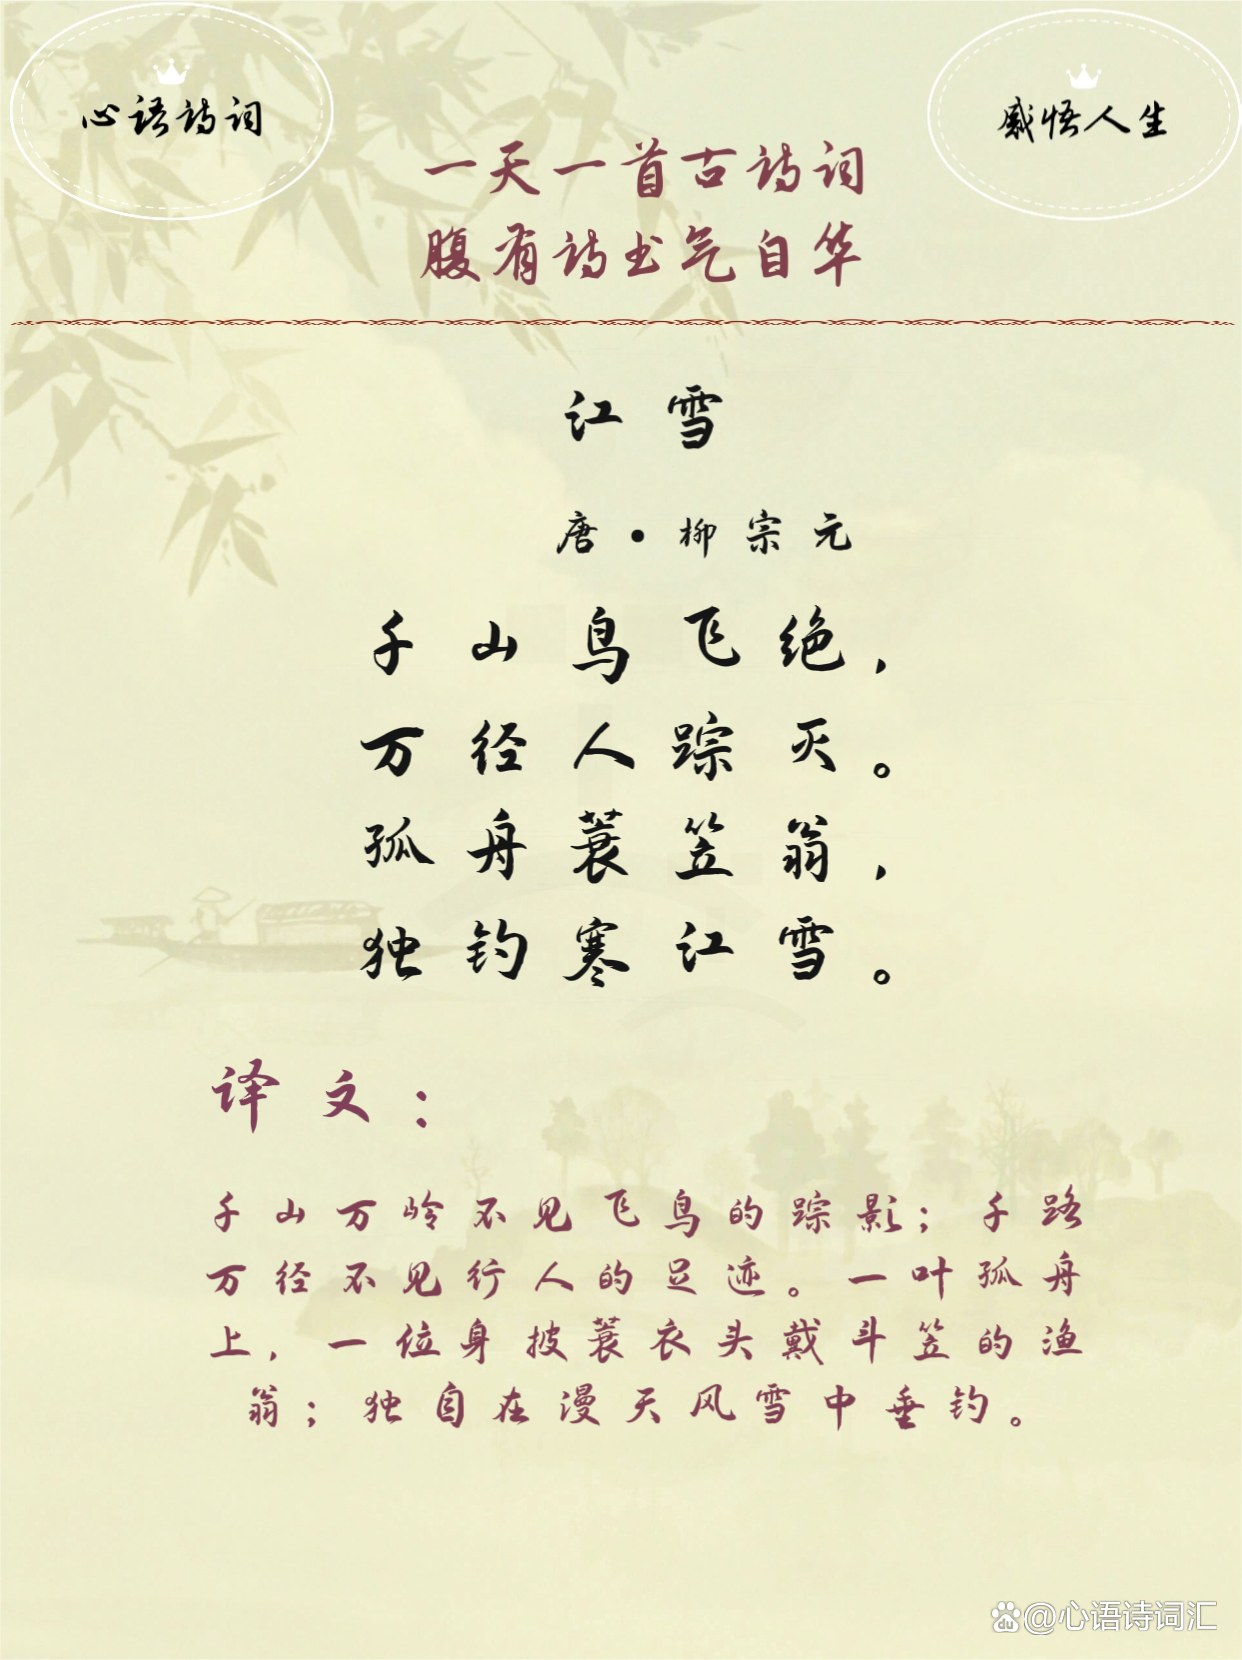 心语诗词
感悟人生
一天一首古诗词
腹有诗书气自华
江雪
唐·柳宗元
千山鸟飞绝，
万径人踪灭。
孤舟蓑笠翁，
独钓寒江雪。
译文：
千山万岭不见飞鸟的踪影；千路
万径不见行人的足迹。一叶孤舟
上，一位身披蓑衣头戴斗笠的渔
翁；独自在漫天风雪中垂钓。
du@心语诗词汇